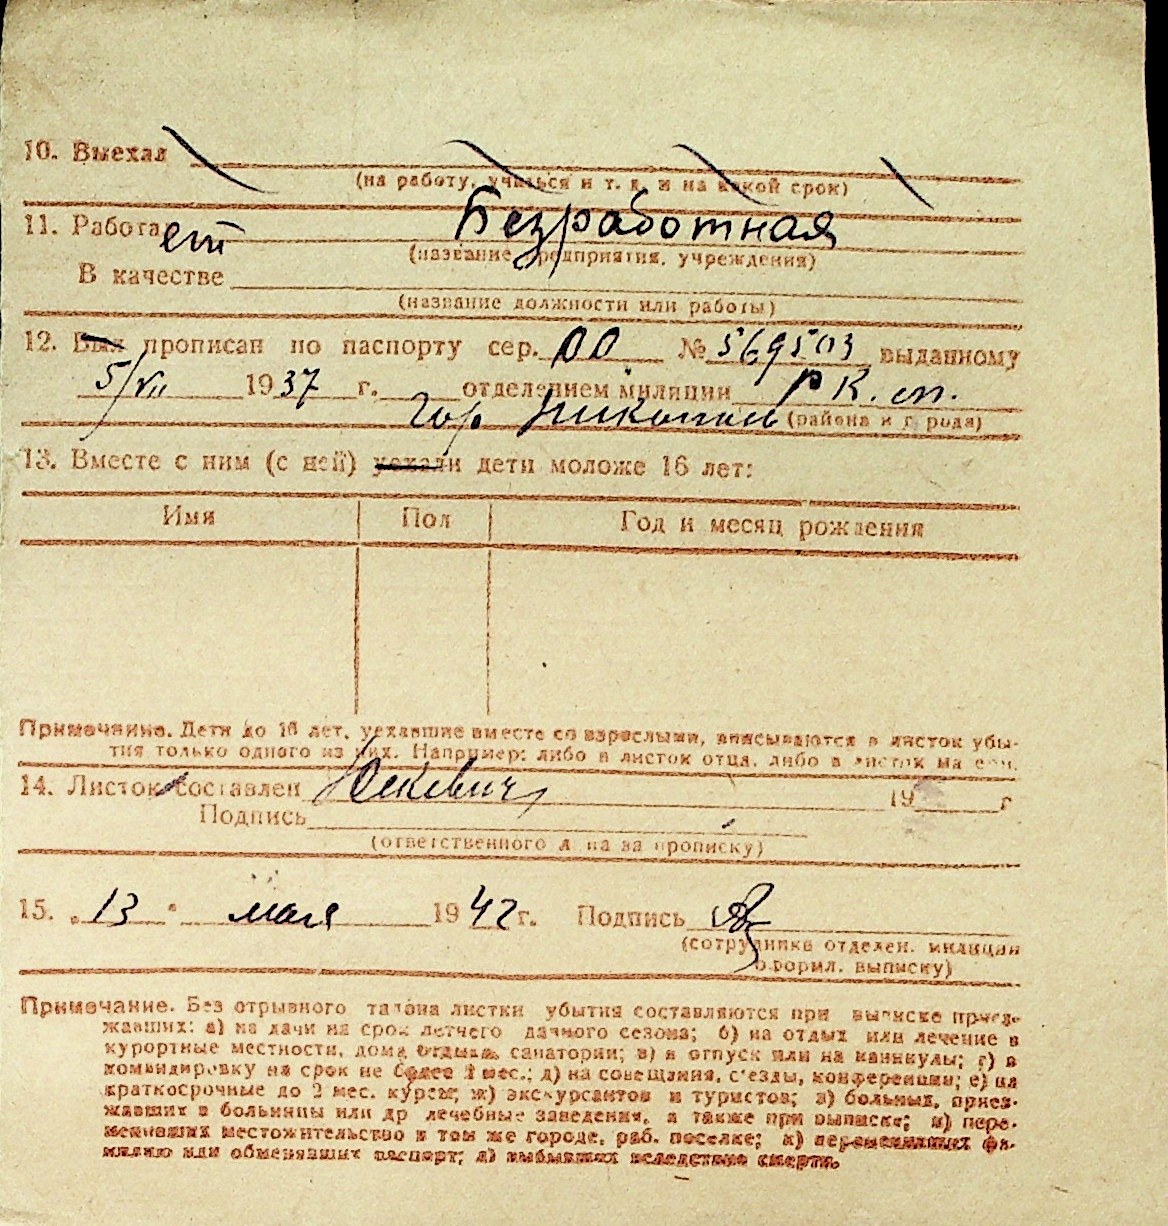 10. Выехал
(на работу, учиться и т. д. и на какой срок)
11. Работает Безработная
(название предприятия, учреждения)
В качестве
(название должности или работы)
12. Был прописан по паспорту сер. № 569503 выданному
5/VII 1937 г. отделением милиции Р.К.
гор Никополь (района и города)
13. Вместе с ним (с ней) уехали дети моложе 16 лет:
Имя Пол Год и месяц рождения
Примечание. Дети до 16 лет, уехавшие вместе со взрослыми, вписываются в листок убы-
тия только одного из них. Например: либо в листок отца, либо в листок матери.
14. Листок составлен 19 г
Подпись
(ответственного лица за прописку)
15. „13" мая 1942 г. Подпись
(сотрудника отделен. милиции
оформл. выписку)
Примечание. Без отрывного талона листки убытия составляются при выписке приез-
жавших: а) на дачи на срок летнего дачного сезона; б) на отдых или лечение в
курортные местности, дома отдыха, санатории; в) в отпуск или на каникулы; г) в
командировку на срок не более 2 мес.; д) на совещания, с'езды, конференции; е) на
краткосрочные до 2 мес. курсы; ж) экскурсантов и туристов; з) больных, приез-
жавших в больницы или др лечебные заведения, а также при выписке; и) пере-
менивших местожительство в том же городе, раб. поселке; к) переменивших фа-
милию или обменявших паспорт; л) выбывших вследствие смерти.